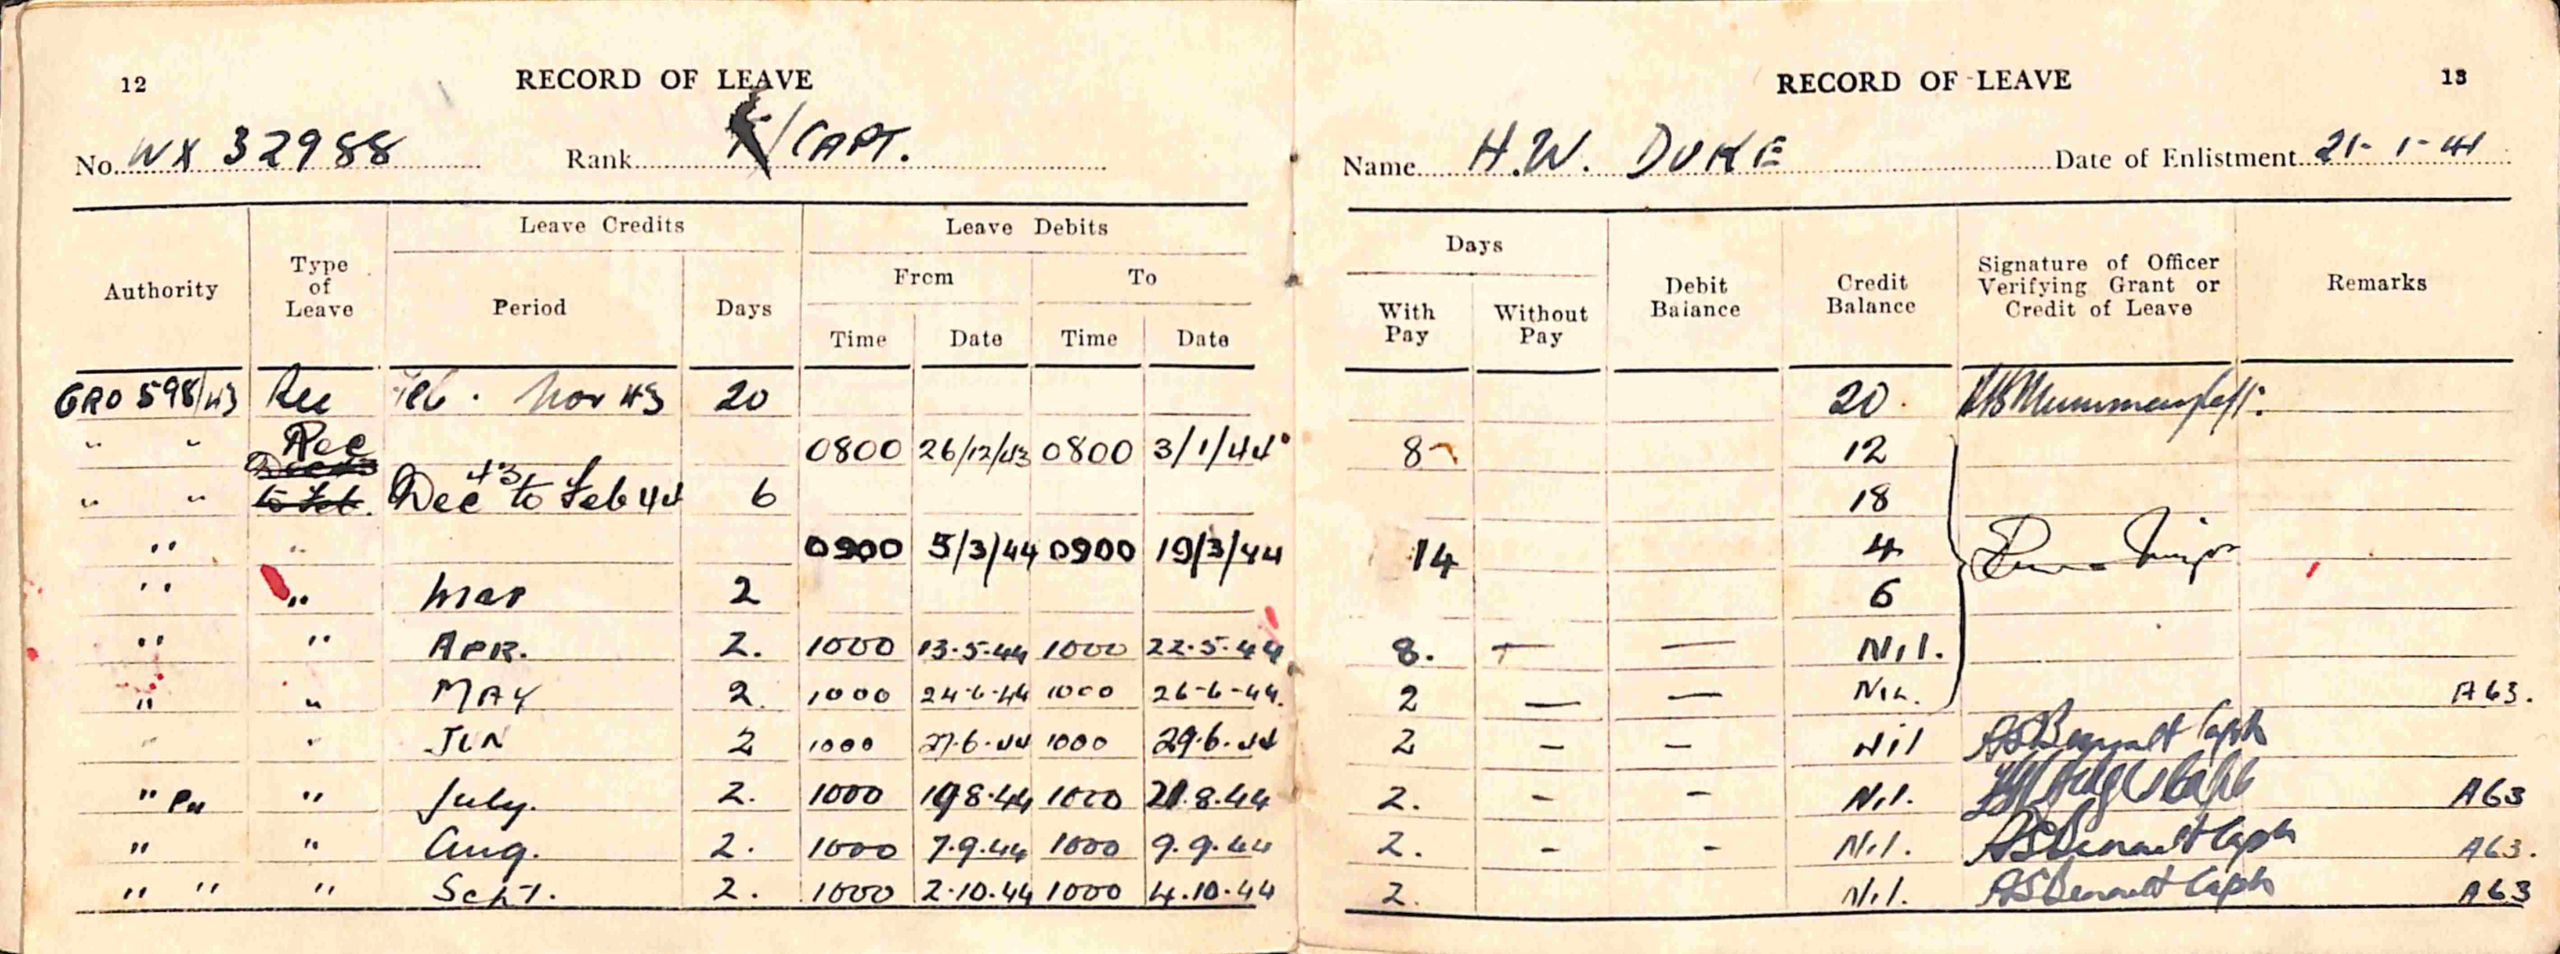 12 RECORD OF LEAVE
No. WX 32988 Rank /CAPT.
Authority Type of Leave Leave Credits Leave Debits
Period Days From To
Time Date Time Date
GRO 598/43 Rec Feb. Nov 43 20
" " Rec 0800 26/12/43 0800 3/1/44
" " Dec 43 to Feb 44 6
" " 0900 5/3/44 0900 19/3/44
" " Mar 2
" " APR. 2. 1000 13.5.44 1000 22.5.44
" " MAY 2. 1000 24-6-44 1000 26-6-44.
" " JUN 2 1000 27.6.44 1000 29.6.44
" " July. 2. 1000 19 8.44 1000 21.8.44
" " Aug. 2. 1000 7.9.44 1000 9.9.44
" " " Sept. 2. 1000 2.10.44 1000 4.10.44
RECORD OF LEAVE 13
Name H.W. DUKE Date of Enlistment 21-1-41
Days Debit Balance Credit Balance Signature of Officer Verifying Grant or Credit of Leave Remarks
With Pay Without Pay
20.
8 12
18
14 4
6
8. — — Nil.
2 — — NIL. A63.
2 – – Nil Bennett Capt
2. – – Nil. A63
2. – – Nil. Bennett Capt A63.
2. Nil. Bennett Capt A63